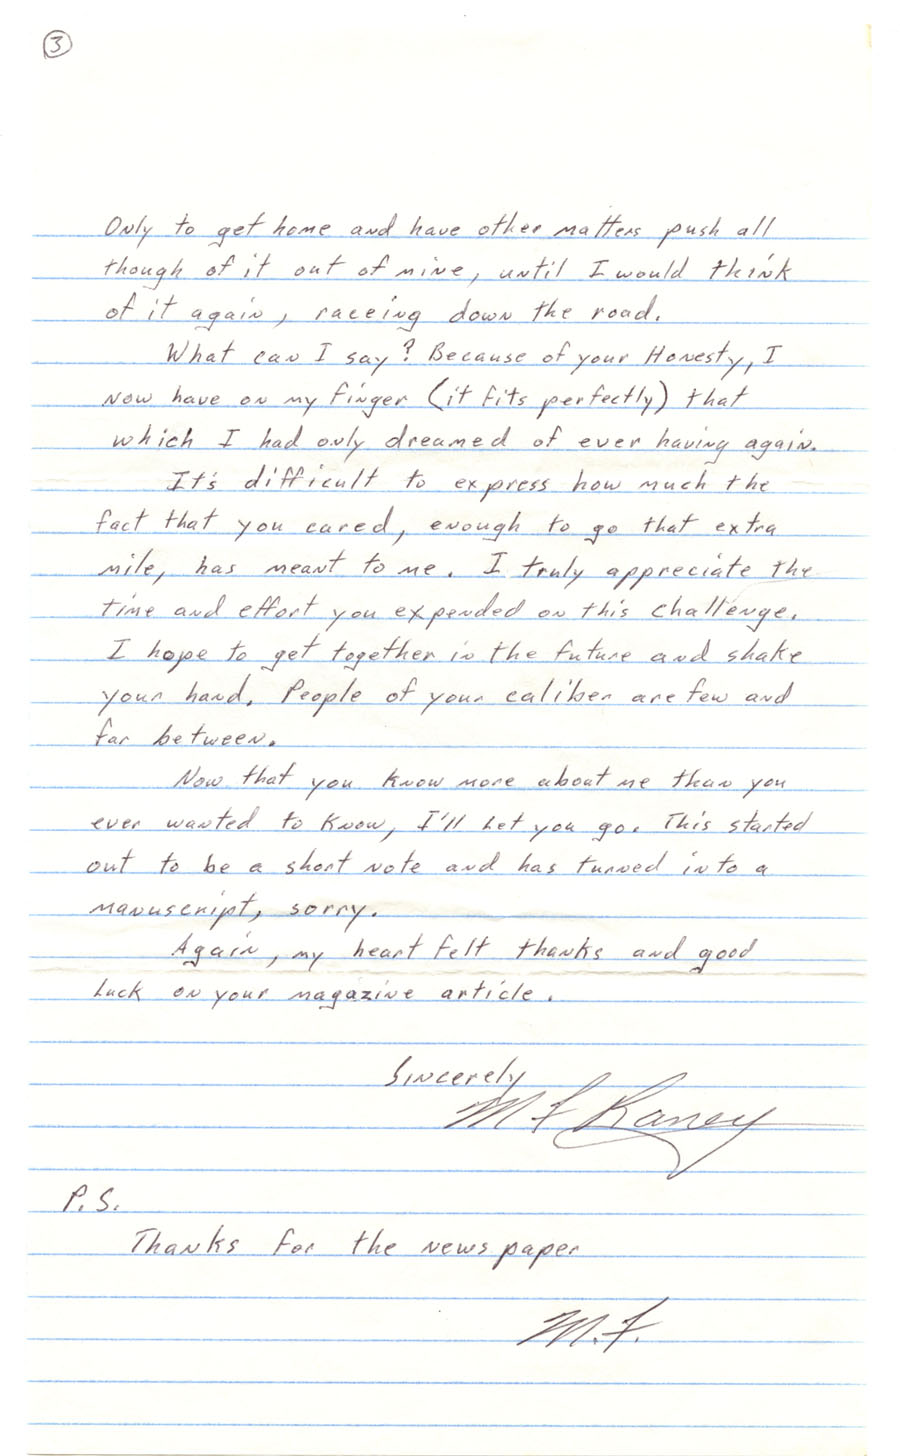 3
Only to get home and have other matters push all
though of it out of mine, until I would think
of it again, raceing down the road.
What can I say? Because of your Honesty, I
now have on my finger (it fits perfectly) that
which I had only dreamed of ever having again.
It's difficult to express how much the
fact that you cared, enough to go that extra
mile, has meant to me. I truly appreciate the
time and effort you expended on this challenge.
I hope to get together in the future and shake
your hand. People of your caliber are few and
far between.
Now that you know more about me than you
ever wanted to know, I'll let you go. This started
out to be a short note and has turned into a
manuscript, sorry.
Again, my heart felt thanks and good
luck on your magazine article.
Sincerely
M F Raney
P.S.
Thanks for the news paper
M.F.